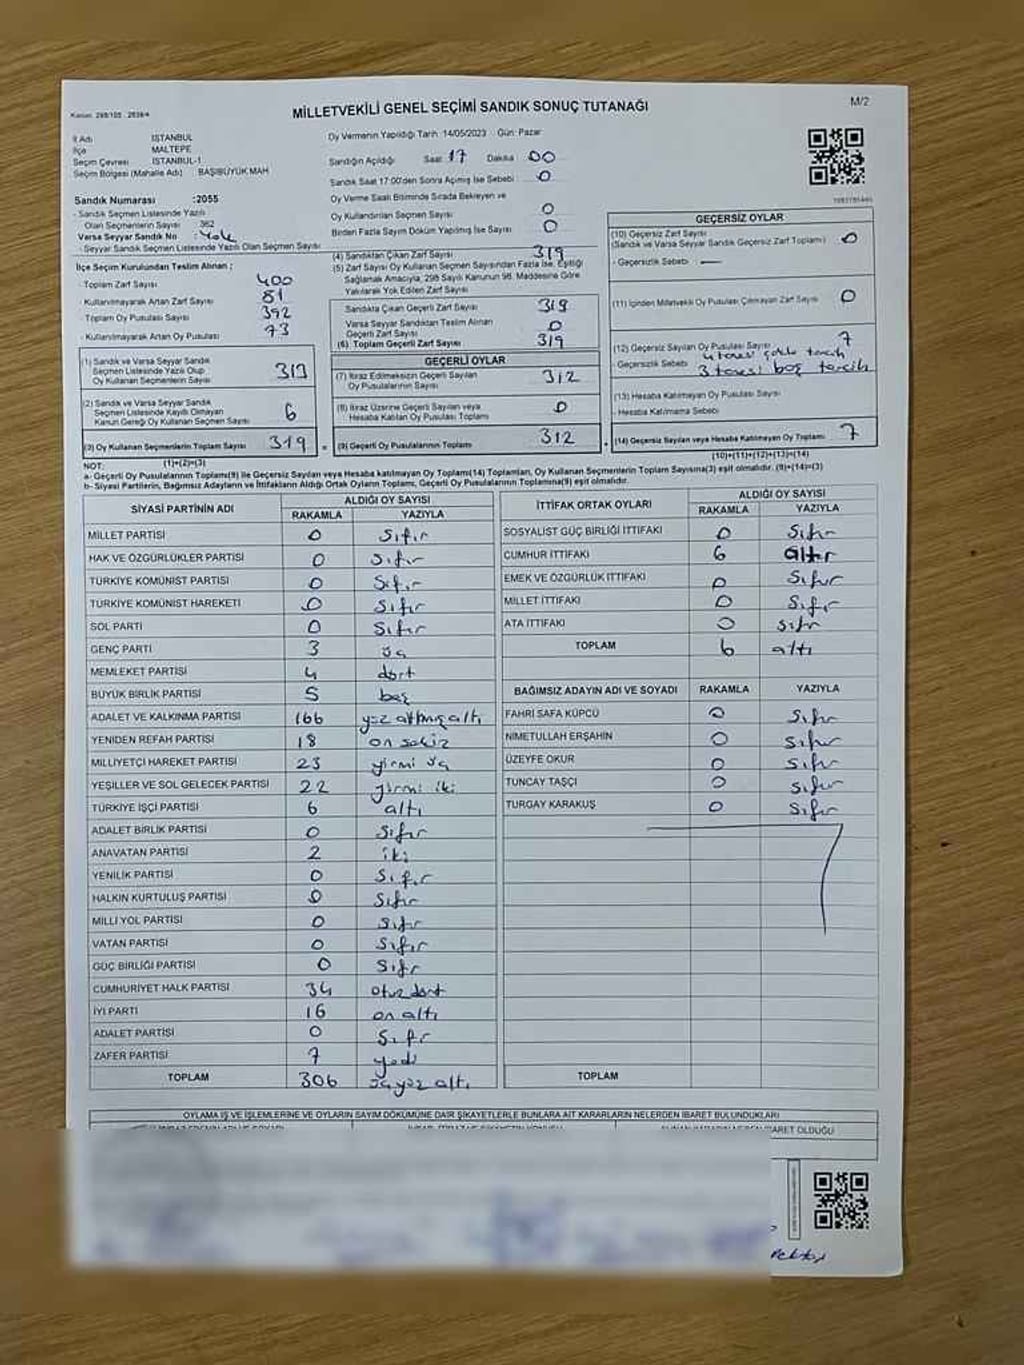 MİLLETVEKİLİ GENEL SEÇİMİ SANDIK SONUÇ TUTANAĞI
M/2
İl Adı İSTANBUL
İlçe MALTEPE
Seçim Çevresi İSTANBUL-1
Seçim Bölgesi (Mahalle Adı) BAŞIBÜYÜK MAH
Sandık Numarası :2055
- Sandık Seçmen Listesinde Yazılı
Olan Seçmenlerin Sayısı 362
Varsa Seyyar Sandık No : Yok
- Seyyar Sandık Seçmen Listesinde Yazılı Olan Seçmen Sayısı
İlçe Seçim Kurulundan Teslim Alınan ;
- Toplam Zarf Sayısı 400
- Kullanılmayarak Artan Zarf Sayısı 81
- Toplam Oy Pusulası Sayısı 392
- Kullanılmayarak Artan Oy Pusulası 73
(1) Sandık ve Varsa Seyyar Sandık
Seçmen Listesinde Yazılı Olup
Oy Kullanan Seçmenlerin Sayısı 313
(2) Sandık ve Varsa Seyyar Sandık
Seçmen Listesinde Kayıtlı Olmayan
Kanun Gereği Oy Kullanan Seçmen Sayısı 6
(3) Oy Kullanan Seçmenlerin Toplam Sayısı 319
(1)+(2)=(3)
Oy Vermenin Yapıldığı Tarih: 14/05/2023 Gün: Pazar
Sandığın Açıldığı Saat 17 Dakika 00
Sandık Saat 17:00'den Sonra Açılmış İse Sebebi 0
Oy Verme Saati Bitiminde Sırada Bekleyen ve
Oy Kullandırılan Seçmen Sayısı 0
Birden Fazla Sayım Döküm Yapılmış İse Sayısı 0
(4) Sandıktan Çıkan Zarf Sayısı 319
(5) Zarf Sayısı Oy Kullanan Seçmen Sayısından Fazla İse, Eşitliği
Sağlamak Amacıyla, 298 Sayılı Kanunun 98. Maddesine Göre
Yakılarak Yok Edilen Zarf Sayısı
Sandıkta Çıkan Geçerli Zarf Sayısı 319
Varsa Seyyar Sandıktan Teslim Alınan
Geçerli Zarf Sayısı 0
(6) Toplam Geçerli Zarf Sayısı 319
GEÇERLİ OYLAR
(7) İtiraz Edilmeksizin Geçerli Sayılan
Oy Pusulalarının Sayısı 312
(8) İtiraz Üzerine Geçerli Sayılan veya
Hesaba Katılan Oy Pusulası Toplamı 0
(9) Geçerli Oy Pusulalarının Toplamı 312
GEÇERSİZ OYLAR
(10) Geçersiz Zarf Sayısı
(Sandık ve Varsa Seyyar Sandık Geçersiz Zarf Toplamı) 0
- Geçersizlik Sebebi
(11) İçinden Milletvekili Oy Pusulası Çıkmayan Zarf Sayısı 0
(12) Geçersiz Sayılan Oy Pusulası Sayısı 7
- Geçersizlik Sebebi 4 tanesi çoklu tercih
3 tanesi boş tercih
(13) Hesaba Katılmayan Oy Pusulası Sayısı
- Hesaba Katılmama Sebebi
(14) Geçersiz Sayılan veya Hesaba Katılmayan Oy Toplamı 7
(10)+(11)+(12)+(13)=(14)
NOT:
a- Geçerli Oy Pusulalarının Toplamı(9) ile Geçersiz Sayılan veya Hesaba katılmayan Oy Toplam(14) Toplamları, Oy Kullanan Seçmenlerin Toplam Sayısına(3) eşit olmalıdır. (9)+(14)=(3)
b- Siyasi Partilerin, Bağımsız Adayların ve İttifakların Aldığı Ortak Oyların Toplamı, Geçerli Oy Pusulalarının Toplamına(9) eşit olmalıdır.
SİYASİ PARTİNİN ADI ALDIĞI OY SAYISI
RAKAMLA YAZIYLA
MİLLET PARTİSİ 0 Sıfır
HAK VE ÖZGÜRLÜKLER PARTİSİ 0 Sıfır
TÜRKİYE KOMÜNİST PARTİSİ 0 Sıfır
TÜRKİYE KOMÜNİST HAREKETİ 0 Sıfır
SOL PARTİ 0 Sıfır
GENÇ PARTİ 3 üç
MEMLEKET PARTİSİ 4 dört
BÜYÜK BİRLİK PARTİSİ 5 beş
ADALET VE KALKINMA PARTİSİ 166 yüz altmış altı
YENİDEN REFAH PARTİSİ 18 on sekiz
MİLLİYETÇİ HAREKET PARTİSİ 23 yirmi üç
YEŞİLLER VE SOL GELECEK PARTİSİ 22 yirmi iki
TÜRKİYE İŞÇİ PARTİSİ 6 altı
ADALET BİRLİK PARTİSİ 0 Sıfır
ANAVATAN PARTİSİ 2 iki
YENİLİK PARTİSİ 0 Sıfır
HALKIN KURTULUŞ PARTİSİ 0 Sıfır
MİLLİ YOL PARTİSİ 0 Sıfır
VATAN PARTİSİ 0 Sıfır
GÜÇ BİRLİĞİ PARTİSİ 0 Sıfr
CUMHURİYET HALK PARTİSİ 34 otuz dört
İYİ PARTİ 16 on altı
ADALET PARTİSİ 0 Sıfır
ZAFER PARTİSİ 7 yedi
TOPLAM 306 üçyüz altı
İTTİFAK ORTAK OYLARI ALDIĞI OY SAYISI
RAKAMLA YAZIYLA
SOSYALİST GÜÇ BİRLİĞİ İTTİFAKI 0 Sıfır
CUMHUR İTTİFAKI 6 altı
EMEK VE ÖZGÜRLÜK İTTİFAKI 0 Sıfır
MİLLET İTTİFAKI 0 Sıfır
ATA İTTİFAKI 0 Sıfır
TOPLAM 6 altı
BAĞIMSIZ ADAYIN ADI VE SOYADI RAKAMLA YAZIYLA
FAHRİ SAFA KÜPCÜ 0 Sıfır
NİMETULLAH ERŞAHİN 0 Sıfır
ÜZEYFE OKUR 0 Sıfır
TUNCAY TAŞÇI 0 Sıfır
TURGAY KARAKUŞ 0 Sıfır
TOPLAM
OYLAMA İŞ VE İŞLEMLERİNE VE OYLARIN SAYIM DÖKÜMÜNE DAİR ŞİKAYETLERLE BUNLARA AİT KARARLARIN NELERDEN İBARET BULUNDUKLARI